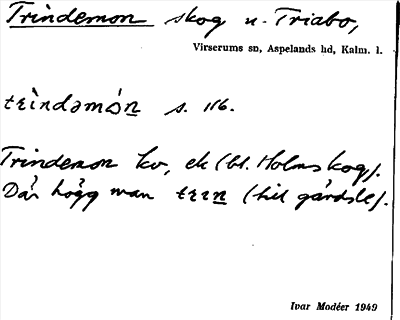 Trindemon skog u. Triabo,
Virserums sn, Aspelands hd, Kalm. l.
trìndəmón s. 116.
Trindemon kv, ek (bl. Holmskog).
Där högg man trin (till gärdsle).
Ivar Modéer 1949